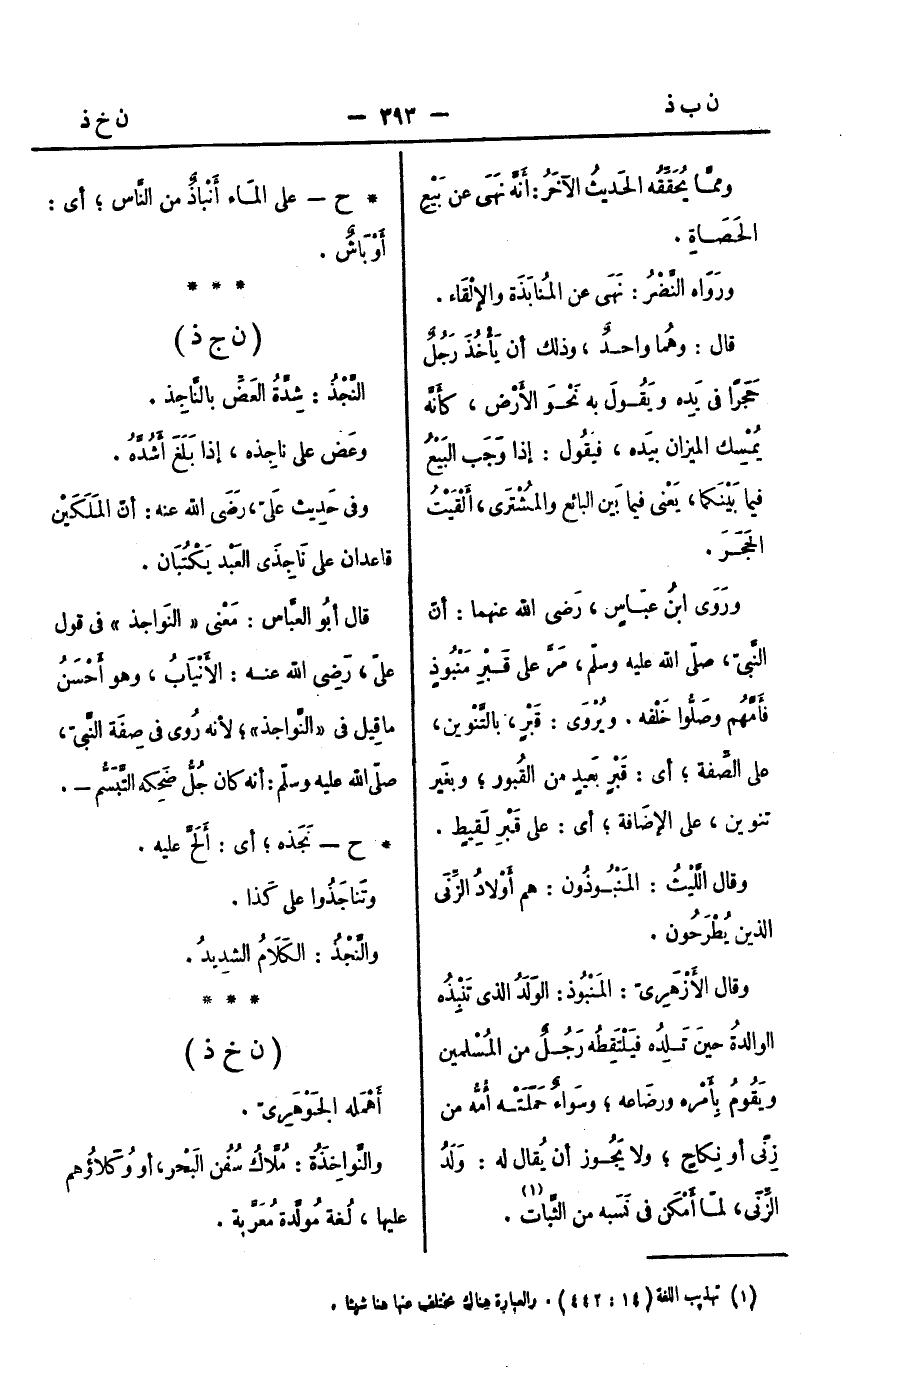 ن ب ذ — ٣٩٣ — ن خ ذ
ومِمَّا يُحَقِّقُه الحَدِيثُ الآخَرُ: أَنَّه نَهَى عن بَيْعِ
الحَصَاةِ .
ورَوَاه النَّضْرُ : نَهَى عن المُنابَذَة والإلْقَاء .
قال : وهُما واحدٌ ، وذلك أن يَأْخُذَ رَجُلٌ
حَجَرًا فى يَدِه ويَقُولَ به نَحْوَ الأرْض ، كأنَّه
يُمْسِك الميزان بيَدِه ، فيَقُول : إذا وَجَب البَيْعُ
فيما بَيْنَكما، يَعْنى فيما بَين البائع والمُشْتَرِى، أَلْقَيْتُ
الحَجَرَ .
ورَوَى ابنُ عبّاسٍ ، رَضى الله عنهما : أنّ
النَّبىّ، صلّى الله عليه وسلّم، مَرَّ على قَبْرٍ مَنْبُوذٍ
فأَمَّهُم وصَلُّوا خَلْفَه . ويُرْوَى : قَبْرٍ، بالتَّنْوِين،
على الصِّفة ؛ أى : قَبْرٍ بَعِيدٍ من القُبور ؛ وبغَير
تنوين ، على الإضَافة ؛ أى : على قَبْرِ لَقِيطٍ .
وقال اللَّيْثُ : المَنْبُوذُون : هم أَوْلادُ الزِّنَى
الذين يُطْرَحُون .
وقال الأَزْهَرِىّ : المَنْبُوذ : الوَلَدُ الذى تَنْبِذُه
الوالدةُ حينَ تَلِدُه فيَلْتَقِطُه رَجُلٌ من المُسْلمين
ويَقُومُ بأَمْرِه ورضَاعه ؛ وسَواءٌ حَمَلَتْه أُمُّه من
زِنًى أو نِكاحٍ ؛ ولا يَجُوز أن يُقال له : وَلَدُ
الزِّنَى، لمّا أَمْكَن فى نَسَبِه من الثَّبات (١) .
* ح — على المَاء أَنْبَاذٌ من النَّاس ؛ أى :
أَوْبَاشٌ .
* * *
( ن ج ذ )
النَّجْذُ : شِدَّةُ العَضِّ بالنَّاجِذ .
وعَضَّ على ناجِذه ، إذا بَلَغَ أَشُدَّه .
وفى حَدِيث عَلىّ، رَضَى الله عنه : أنّ المَلَكَيْن
قاعدان على نَاجِذَى العَبْد يَكْتُبَان .
قال أبُو العبَّاس : مَعْنى « النَواجذ » فى قول
علىّ، رَضِى الله عنه : الأَنْيَابُ ، وهو أَحْسَنُ
ما قِيل فى «النَّواجذ»؛ لأنه رُوى فى صِفَة النَّبىّ،
صلّى الله عليه وسلّم: أنه كان جُلُّ ضَحِكه التَّبَسُّم — .
* ح — نَجَذه ؛ أى : أَلَحَّ عليه .
وتَناجَذُوا على كَذا .
والنَّجْذُ : الكَلَامُ الشديدُ .
* * *
( ن خ ذ )
أَهْمَله الجَوْهَرِىّ .
والنَّواخِذَةُ : مُلَّاكُ سُفُن البَحْر، أو وُكَلاؤُهم
عليها ، لُغة مُولَّدة مُعَرَّبة .
(١) تهذيب اللغة (١٤ : ٤٤٢) . والعبارة هناك تختلف عنها هنا شيئا .